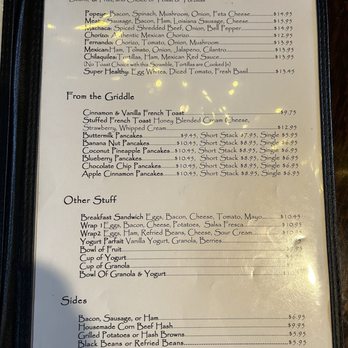 Popeye: Bacon, Spinach, Mushroom, Onion, Feta Cheese $14.95
Meat: Sausage, Bacon, Ham, Louisana Sausage, Cheese
Machaca: Spiced Shredded Beef, Onion, Bell Pepper
Chorizo: Authentic Mexican Chorizo $12.95
Fernando: Chorizo, Tomato, Onion, Mushroom
Mexican: Ham, Tomato, Onion, Jalapeno, Cilantro $13.95
Chilaquiles: Tortillas, Ham, Mexican Red Sauce $13.95
(No Toast Choice with this Scramble, Tortillas are Cooked in)
Super Healthy: Egg Whites, Diced Tomato, Fresh Basil $13.45
From the Griddle
Cinnamon & Vanilla French Toast $9.75
Stuffed French Toast Honey Blended Cream Cheese,
Strawberry, Whipped Cream $12.95
Buttermilk Pancakes $9.45, Short Stack $7.95, Single $5.95
Banana Nut Pancakes $10.45, Short Stack $8.95, Single $6.95
Coconut Pineapple Pancakes $10.45, Short Stack $8.95, Single $6.95
Blueberry Pancakes $10.45, Short Stack $8.95, Single $6.95
Chocolate Chip Pancakes $10.45, Short Stack $8.95, Single $6.95
Apple Cinnamon Pancakes $10.45, Short Stack $8.95, Single $6.95
Other Stuff
Breakfast Sandwich Eggs, Bacon, Cheese, Tomato, Mayo $10.45
Wrap 1 Eggs, Bacon, Cheese, Potatoes, Salsa Fresca $10.95
Wrap2 Eggs, Ham, Refried Beans, Cheese, Sour Cream
Yogurt Parfait Vanilla Yogurt, Granola, Berries
Bowl of Fruit
Cup of Yogurt
Cup of Granola
Bowl Of Granola & Yogurt
Sides
Bacon, Sausage, or Ham $6.95
Housemade Corn Beef Hash $9.95
Grilled Potatoes or Hash Browns $5.95
Black Beans or Refried Beans